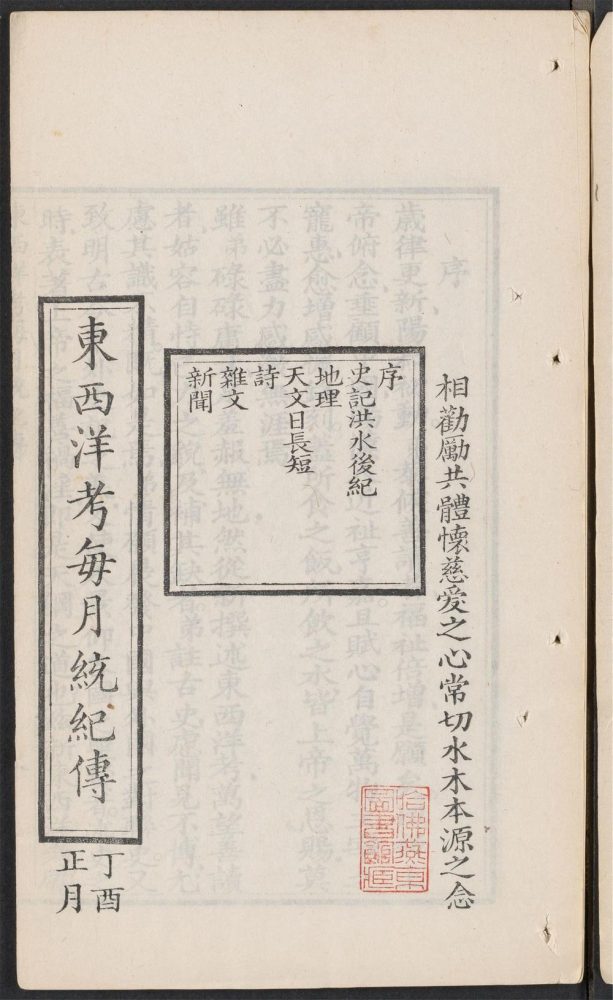 相勸勵共體懷慈愛之心常切水木本源之念
序
史記洪水後紀
地理
天文日長短
詩
雜文
新聞
東西洋考每月統紀傳
丁酉
正月
哈佛燕京
圖書館藏